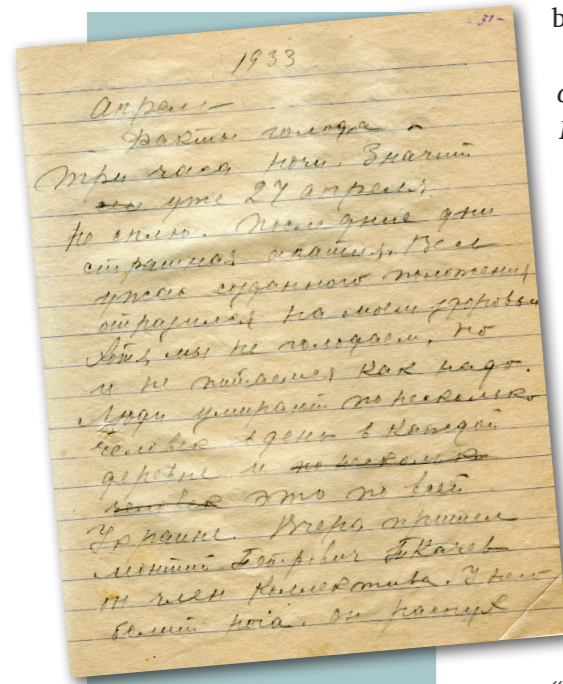 -31-
1933
Апрель
Факты голода -
три часа ночи. Значит
уже 27 апреля
не сплю. Последние дни
страшная апатия. Весь
ужас созданного положения
отразился на моем здоровьи
Хотя мы не голодаем, но
и не питаемся как надо.
Люди умирают по несколько
человек в день в каждой
деревне и по несколько
человек это по всей
Украине. Вчера пришел
Петрович Ткачев
он член Коллектива. У него
болит нога. он распух
b